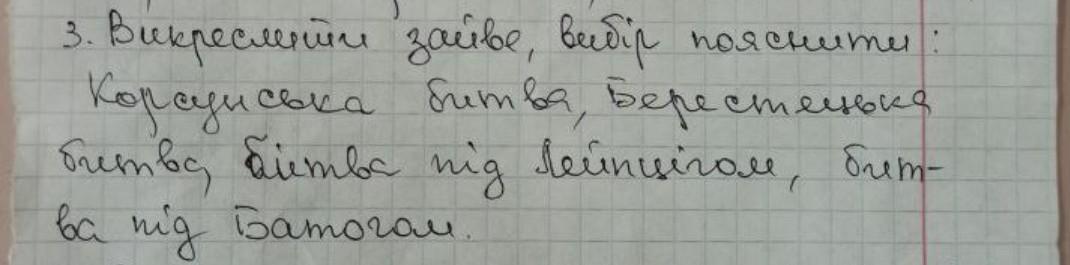 3. Викреслити зайве, вибір пояснити:
Корсунська битва, Берестецька
битва, битва під Лейпцігом, бит-
ва під Батогом.